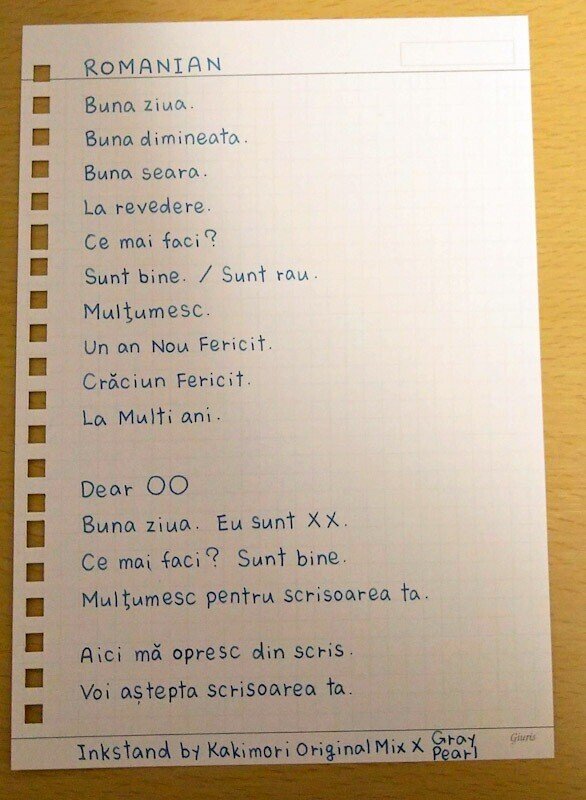 ROMANIAN
Buna ziua.
Buna dimineata.
Buna seara.
La revedere.
Ce mai faci?
Sunt bine. / Sunt rau.
Mulţumesc.
Un an Nou Fericit.
Crăciun Fericit.
La Multi ani.
Dear OO
Buna ziua. Eu sunt XX.
Ce mai faci? Sunt bine.
Mulţumesc pentru scrisoarea ta.
Aici mă opresc din scris.
Voi aştepta scrisoarea ta.
Giuris
Inkstand by Kakimori Original Mix X Gray Pearl